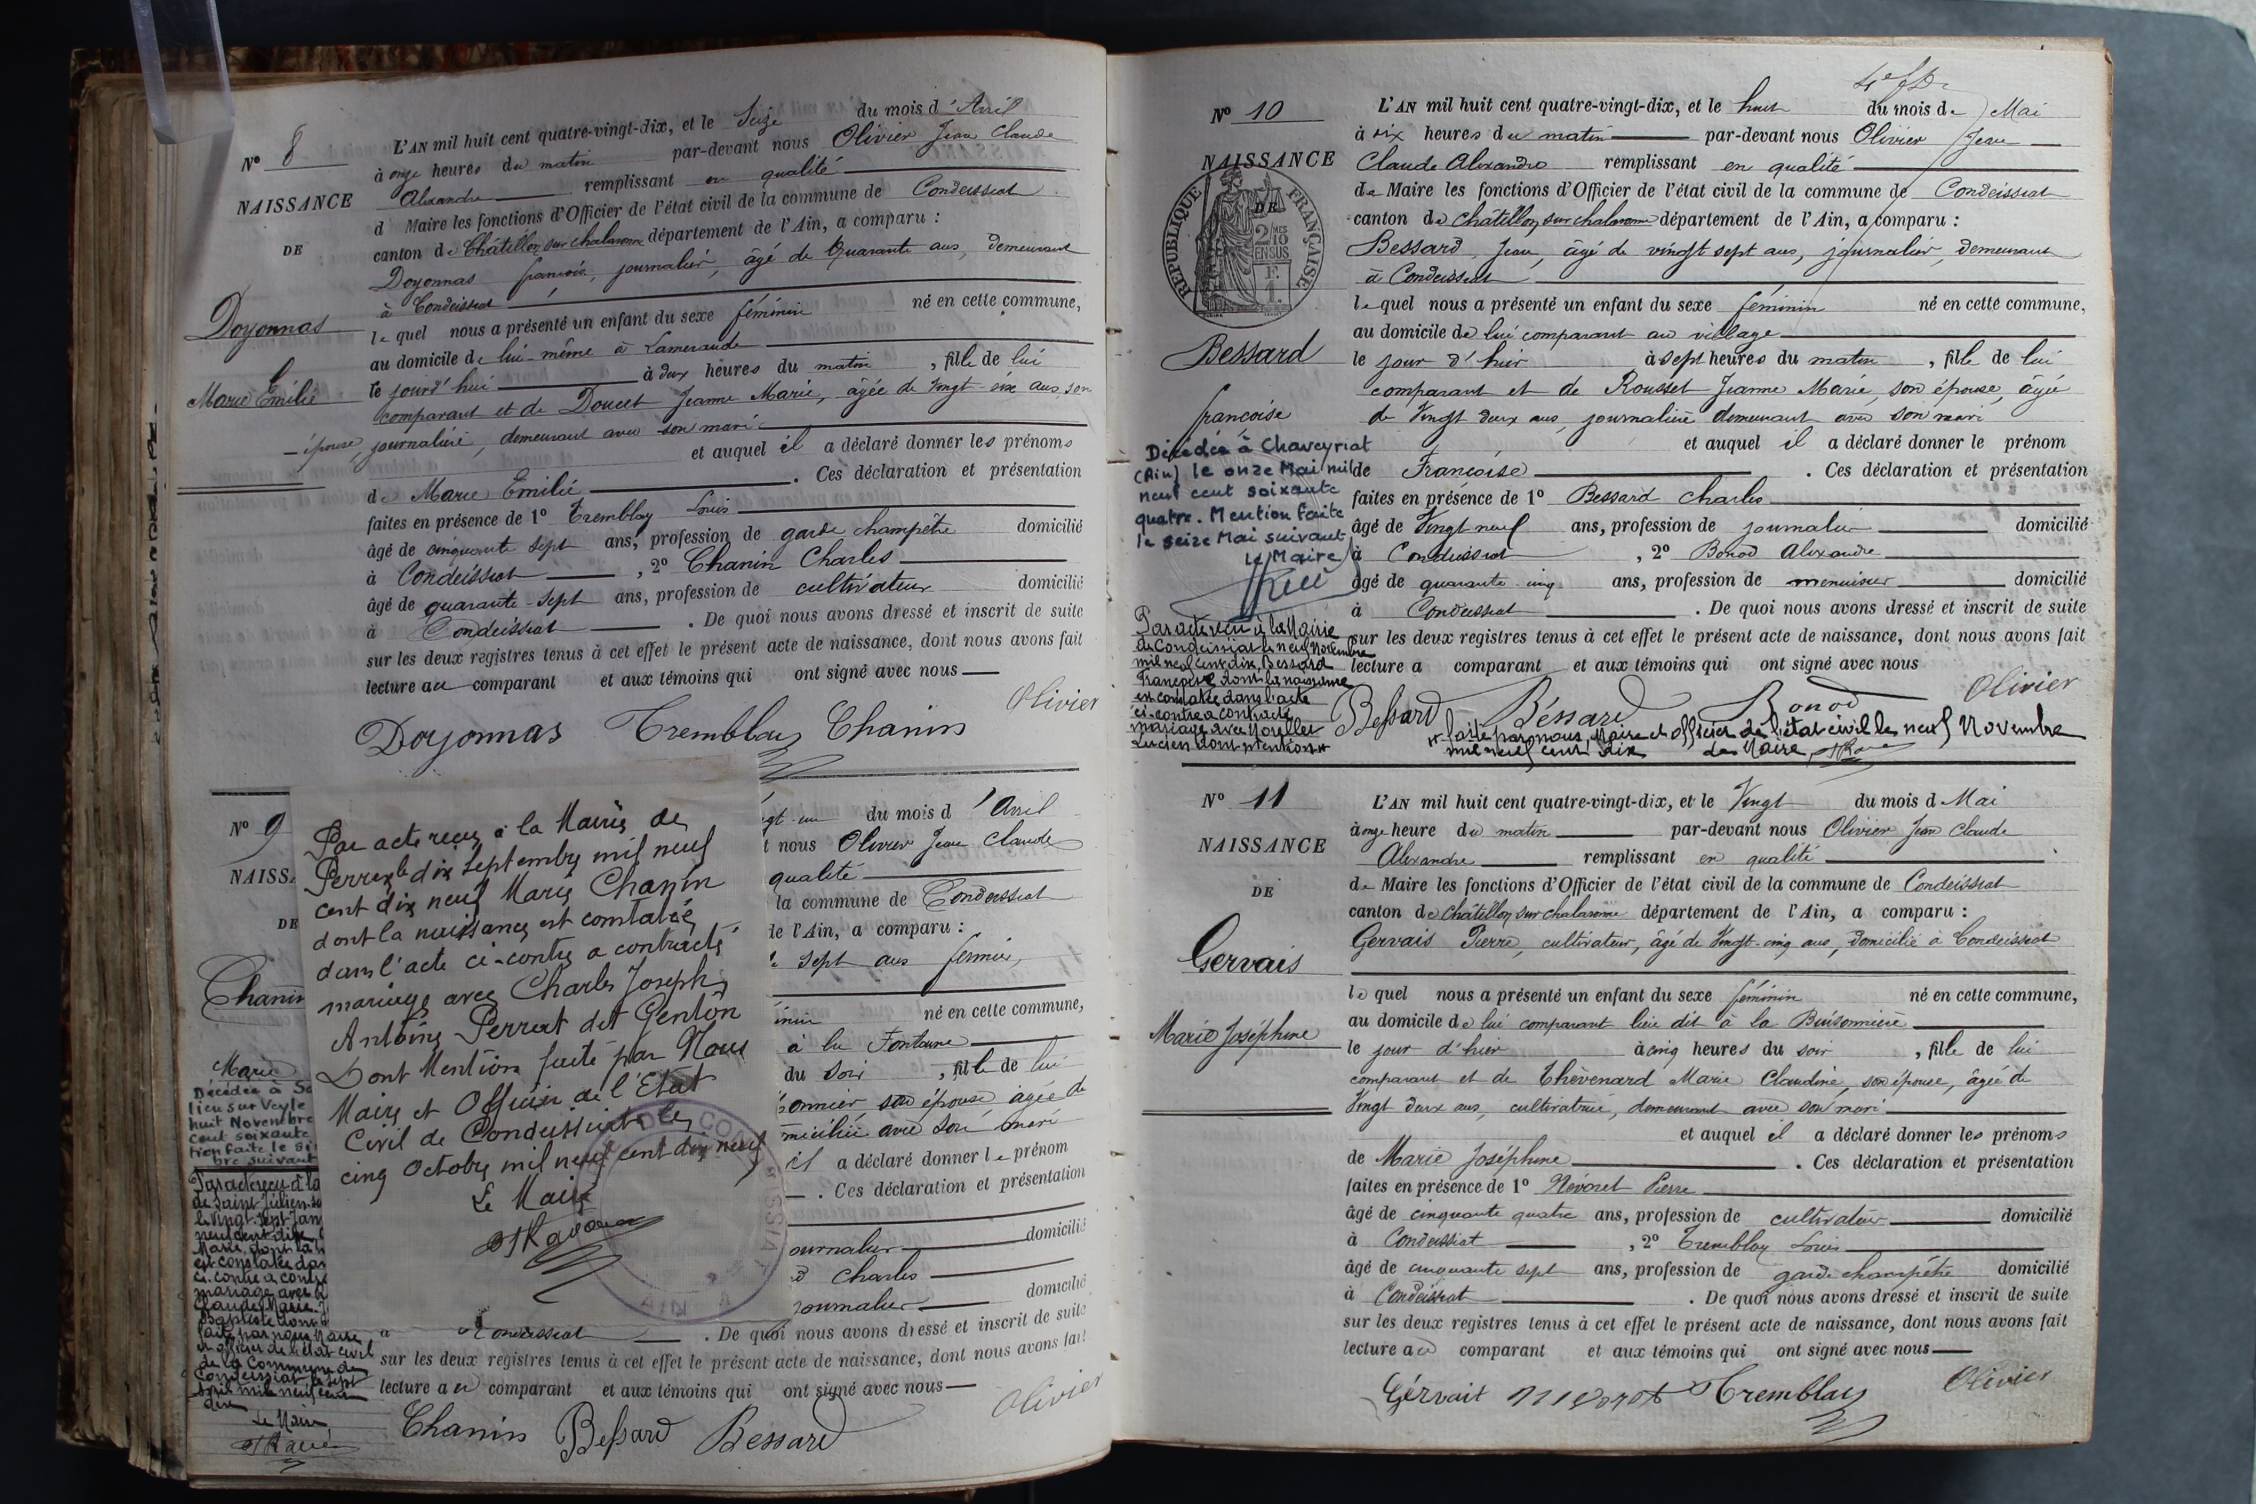 N° 8
NAISSANCE
DE
Doyonnas
Marie Emilie
L'AN mil huit cent quatre-vingt-dix, et le Seize du mois d'Avril
à onze heures du matin par-devant nous Olivier Jean Claude
Alexandre remplissant en qualité
d Maire les fonctions d'Officier de l'état civil de la commune de Condeissiat
canton de Châtillon sur chalaronne département de l'Ain, a comparu :
Doyonnas françois, journalier, âgé de Quarante ans, demeurant
à Condeissiat
le quel nous a présenté un enfant du sexe féminin né en cette commune,
au domicile de lui-même à Lameraude
le jourd'hui à deux heures du matin, fille de lui
comparant et de Doucet Jeanne Marie, âgée de vingt-six ans, son
épouse, journalière, demeurant avec son mari
et auquel il a déclaré donner les prénoms
de Marie Emilie. Ces déclaration et présentation
faites en présence de 1° Tremblay Louis
âgé de cinquante sept ans, profession de garde champêtre domicilié
à Condeissiat, 2° Chanin Charles
âgé de quarante-sept ans, profession de cultivateur domicilié
à Condeissiat. De quoi nous avons dressé et inscrit de suite
sur les deux registres tenus à cet effet le présent acte de naissance, dont nous avons fait
lecture au comparant et aux témoins qui ont signé avec nous
Olivier
Doyonnas Tremblay Chanin
N° 9
NAISSA
DE
Chanin
Marie
Décédée à Sa
lieu sur Veyle
huit Novembre
cent soixante
tion faite le si
bre suivant
Par acte reçu à la
de Saint Julien-s
le vingt-sept Jan
neuf cent dix
Marie, dont la n
est constatée dan
ci-contre a contra
mariage avec
Claude Marie J
Baptiste dont
faite par nous Maire
et officier de l'état civil
de la Commune de
Condeissiat le sept
mil neuf cent
dix
Le Maire
Par acte reçu à la Mairie de
Perrex le dix septembre mil neuf
cent dix neuf Marie Chanin
dont la naissance est constatée
dans l'acte ci-contre a contracté
mariage avec Charles Joseph
Antoine Perrat dit Genton
Dont Mention faite par Nous
Maire et Officier de l'Etat
Civil de Condeissiat le
cinq Octobre mil neuf cent dix neuf
Le Maire
gt-un du mois d'Avril
t nous Olivier Jean Claude
qualité
la commune de Condeissiat
de l'Ain, a comparu :
sept ans fermier,
inin né en cette commune,
à la Fontaine
du soir, fille de lui
onnier son épouse âgée de
miciliée avec son mari
il a déclaré donner le prénom
. Ces déclaration et présentation
ournalier domicilié
d Charles
journalier domicilié
à Condeissiat. De quoi nous avons dressé et inscrit de suite
sur les deux registres tenus à cet effet le présent acte de naissance, dont nous avons fait
lecture au comparant et aux témoins qui ont signé avec nous
Olivier
Chanin Bessard Bessard
N° 10
NAISSANCE
DE
RÉPUBLIQUE FRANÇAISE
2/10 MES
EN SUS
F.
1.
Bessard
françoise
Décédée à Chaveyriat
(Ain) le onze Mai mil
neuf cent soixante
quatre. Mention faite
le seize Mai suivant
Le Maire
Par acte reçu à la Mairie
de Condeissiat le neuf Novembre
mil neuf cent dix, Bessard
Françoise dont la naissance
est constatée dans l'acte
ci-contre a contracté
mariage avec Morellet
Lucien dont mention
L'AN mil huit cent quatre-vingt-dix, et le huit du mois de Mai
à six heures du matin par-devant nous Olivier Jean
Claude Alexandre remplissant en qualité
de Maire les fonctions d'Officier de l'état civil de la commune de Condeissiat
canton de Châtillon sur chalaronne département de l'Ain, a comparu :
Bessard Jean, âgé de vingt sept ans, journalier, demeurant
à Condeissiat
le quel nous a présenté un enfant du sexe féminin né en cette commune,
au domicile de lui comparant au village
le jour d'hier à sept heures du matin, fille de lui
comparant et de Rousset Jeanne Marie, son épouse, âgée
de Vingt deux ans, journalière demeurant avec son mari
et auquel il a déclaré donner le prénom
de Françoise. Ces déclaration et présentation
faites en présence de 1° Bessard Charles
âgé de Vingt neuf ans, profession de journalier domicilié
à Condeissiat, 2° Bonod Alexandre
âgé de quarante-cinq ans, profession de menuisier domicilié
à Condeissiat. De quoi nous avons dressé et inscrit de suite
sur les deux registres tenus à cet effet le présent acte de naissance, dont nous avons fait
lecture a comparant et aux témoins qui ont signé avec nous
Olivier
Bessard Bessard Bonod
faite par nous, Maire et officier de l'état civil le neuf Novembre
mil neuf cent dix Le Maire
N° 11
NAISSANCE
DE
Gervais
Marie Joséphine
L'AN mil huit cent quatre-vingt-dix, et le Vingt du mois d Mai
à onze heure du matin par-devant nous Olivier Jean Claude
Alexandre remplissant en qualité
de Maire les fonctions d'Officier de l'état civil de la commune de Condeissiat
canton de Châtillon sur chalaronne département de l'Ain, a comparu :
Gervais Pierre, cultivateur, âgé de Vingt-cinq ans, domicilié à Condeissiat
le quel nous a présenté un enfant du sexe féminin né en cette commune,
au domicile de lui comparant lieu dit à la Buisonnière
le jour d'hier à cinq heures du soir, fille de lui
comparant et de Thévenard Marie Claudine, son épouse, âgée de
Vingt deux ans, cultivatrice, demeurant avec son mari
et auquel il a déclaré donner les prénoms
de Marie Joséphine. Ces déclaration et présentation
faites en présence de 1° Névoret Pierre
âgé de cinquante quatre ans, profession de cultivateur domicilié
à Condeissiat, 2° Tremblay Louis
âgé de cinquante sept ans, profession de garde champêtre domicilié
à Condeissiat. De quoi nous avons dressé et inscrit de suite
sur les deux registres tenus à cet effet le présent acte de naissance, dont nous avons fait
lecture au comparant et aux témoins qui ont signé avec nous
Olivier
Gérvait Tremblay